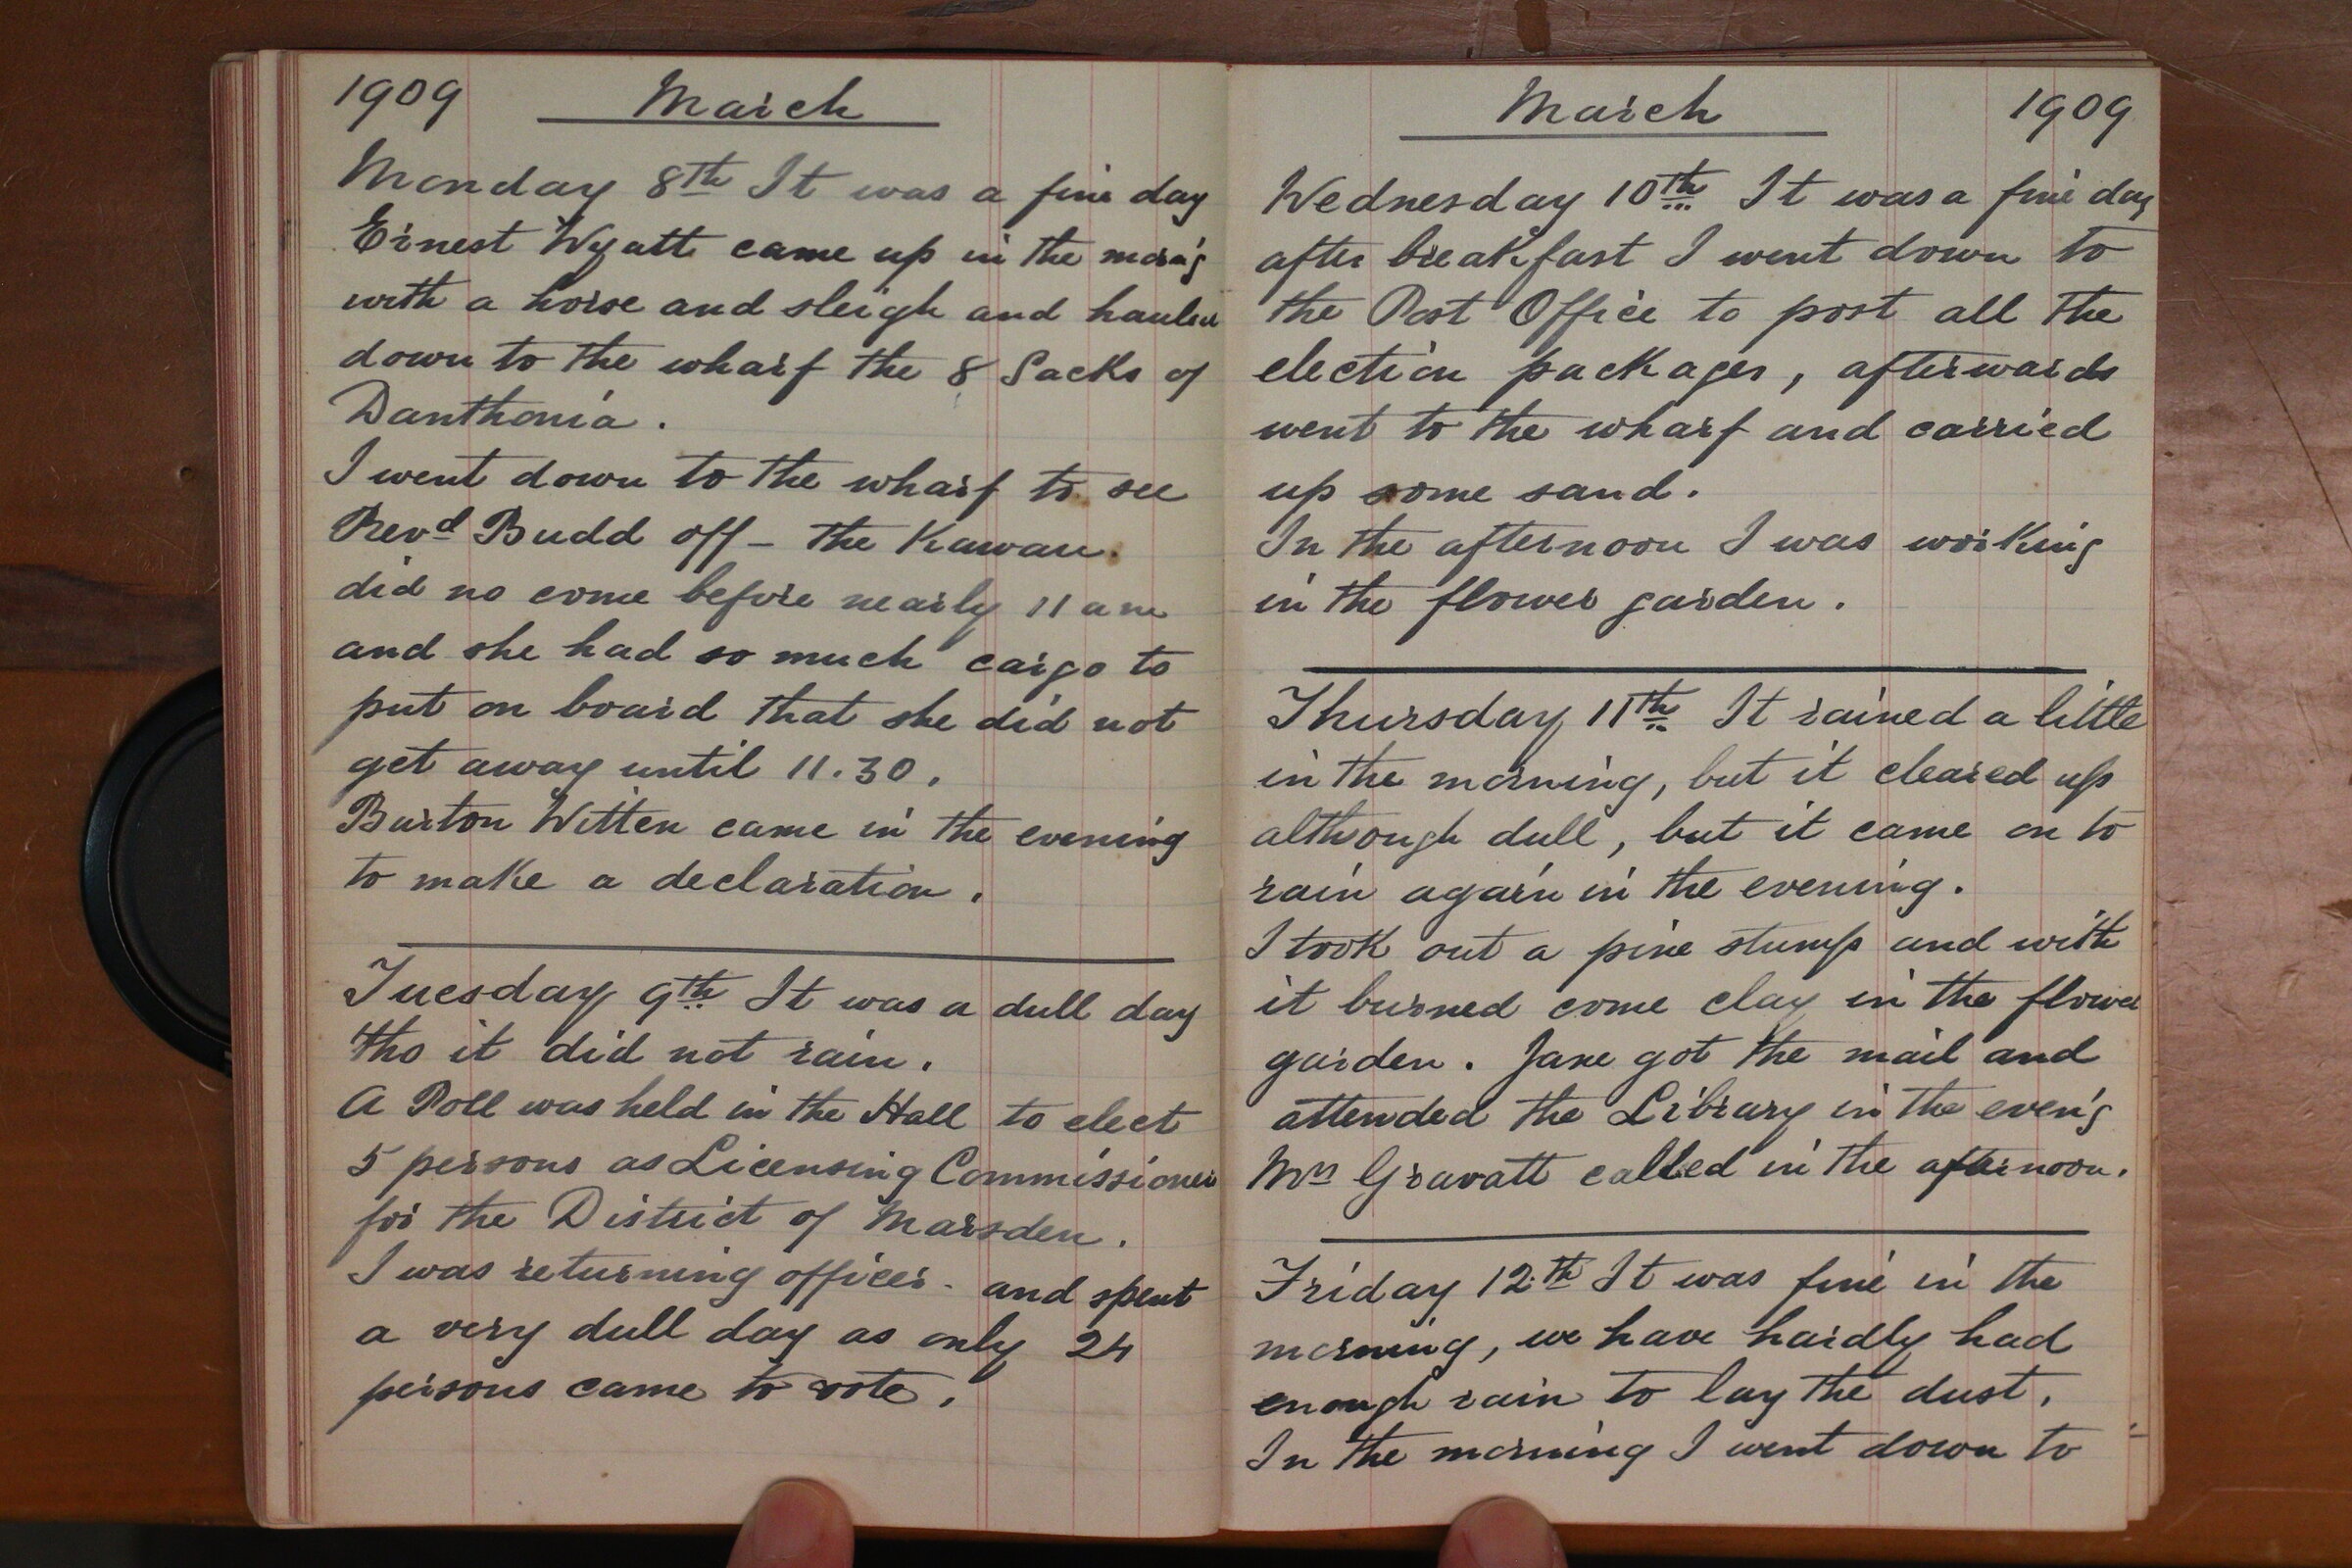 1909 March
Monday 8th It was a fine day
Ernest Wyatt came up in the morn'g
with a horse and sleigh and hauled
down to the wharf the 8 Sacks of
Danthonia.
I went down to the wharf to see
Revd Budd off - the Kawau.
did no come before nearly 11 am
and she had so much cargo to
put on board that she did not
get away until 11.30.
Burton Witten came in the evening
to make a declaration.
Tuesday 9th It was a dull day
tho it did not rain.
A Poll was held in the Hall to elect
5 persons as Licensing Commissioners
for the District of Marsden.
I was returning officer - and spent
a very dull day as only 24
persons came to vote.
March 1909
Wednesday 10th It was a fine day
after breakfast I went down to
the Post Office to post all the
election packages, afterwards
went to the wharf and carried
up some sand.
In the afternoon I was working
in the flower garden.
Thursday 11th It rained a little
in the morning, but it cleared up
although dull, but it came on to
rain again in the evening.
I took out a pine stump and with
it burned come clay in the flower
garden. Jane got the mail and
attended the Library in the even'g
Mrs Gravatt called in the afternoon.
Friday 12th It was fine in the
morning, we have hardly had
enough rain to lay the dust.
In the morning I went down to